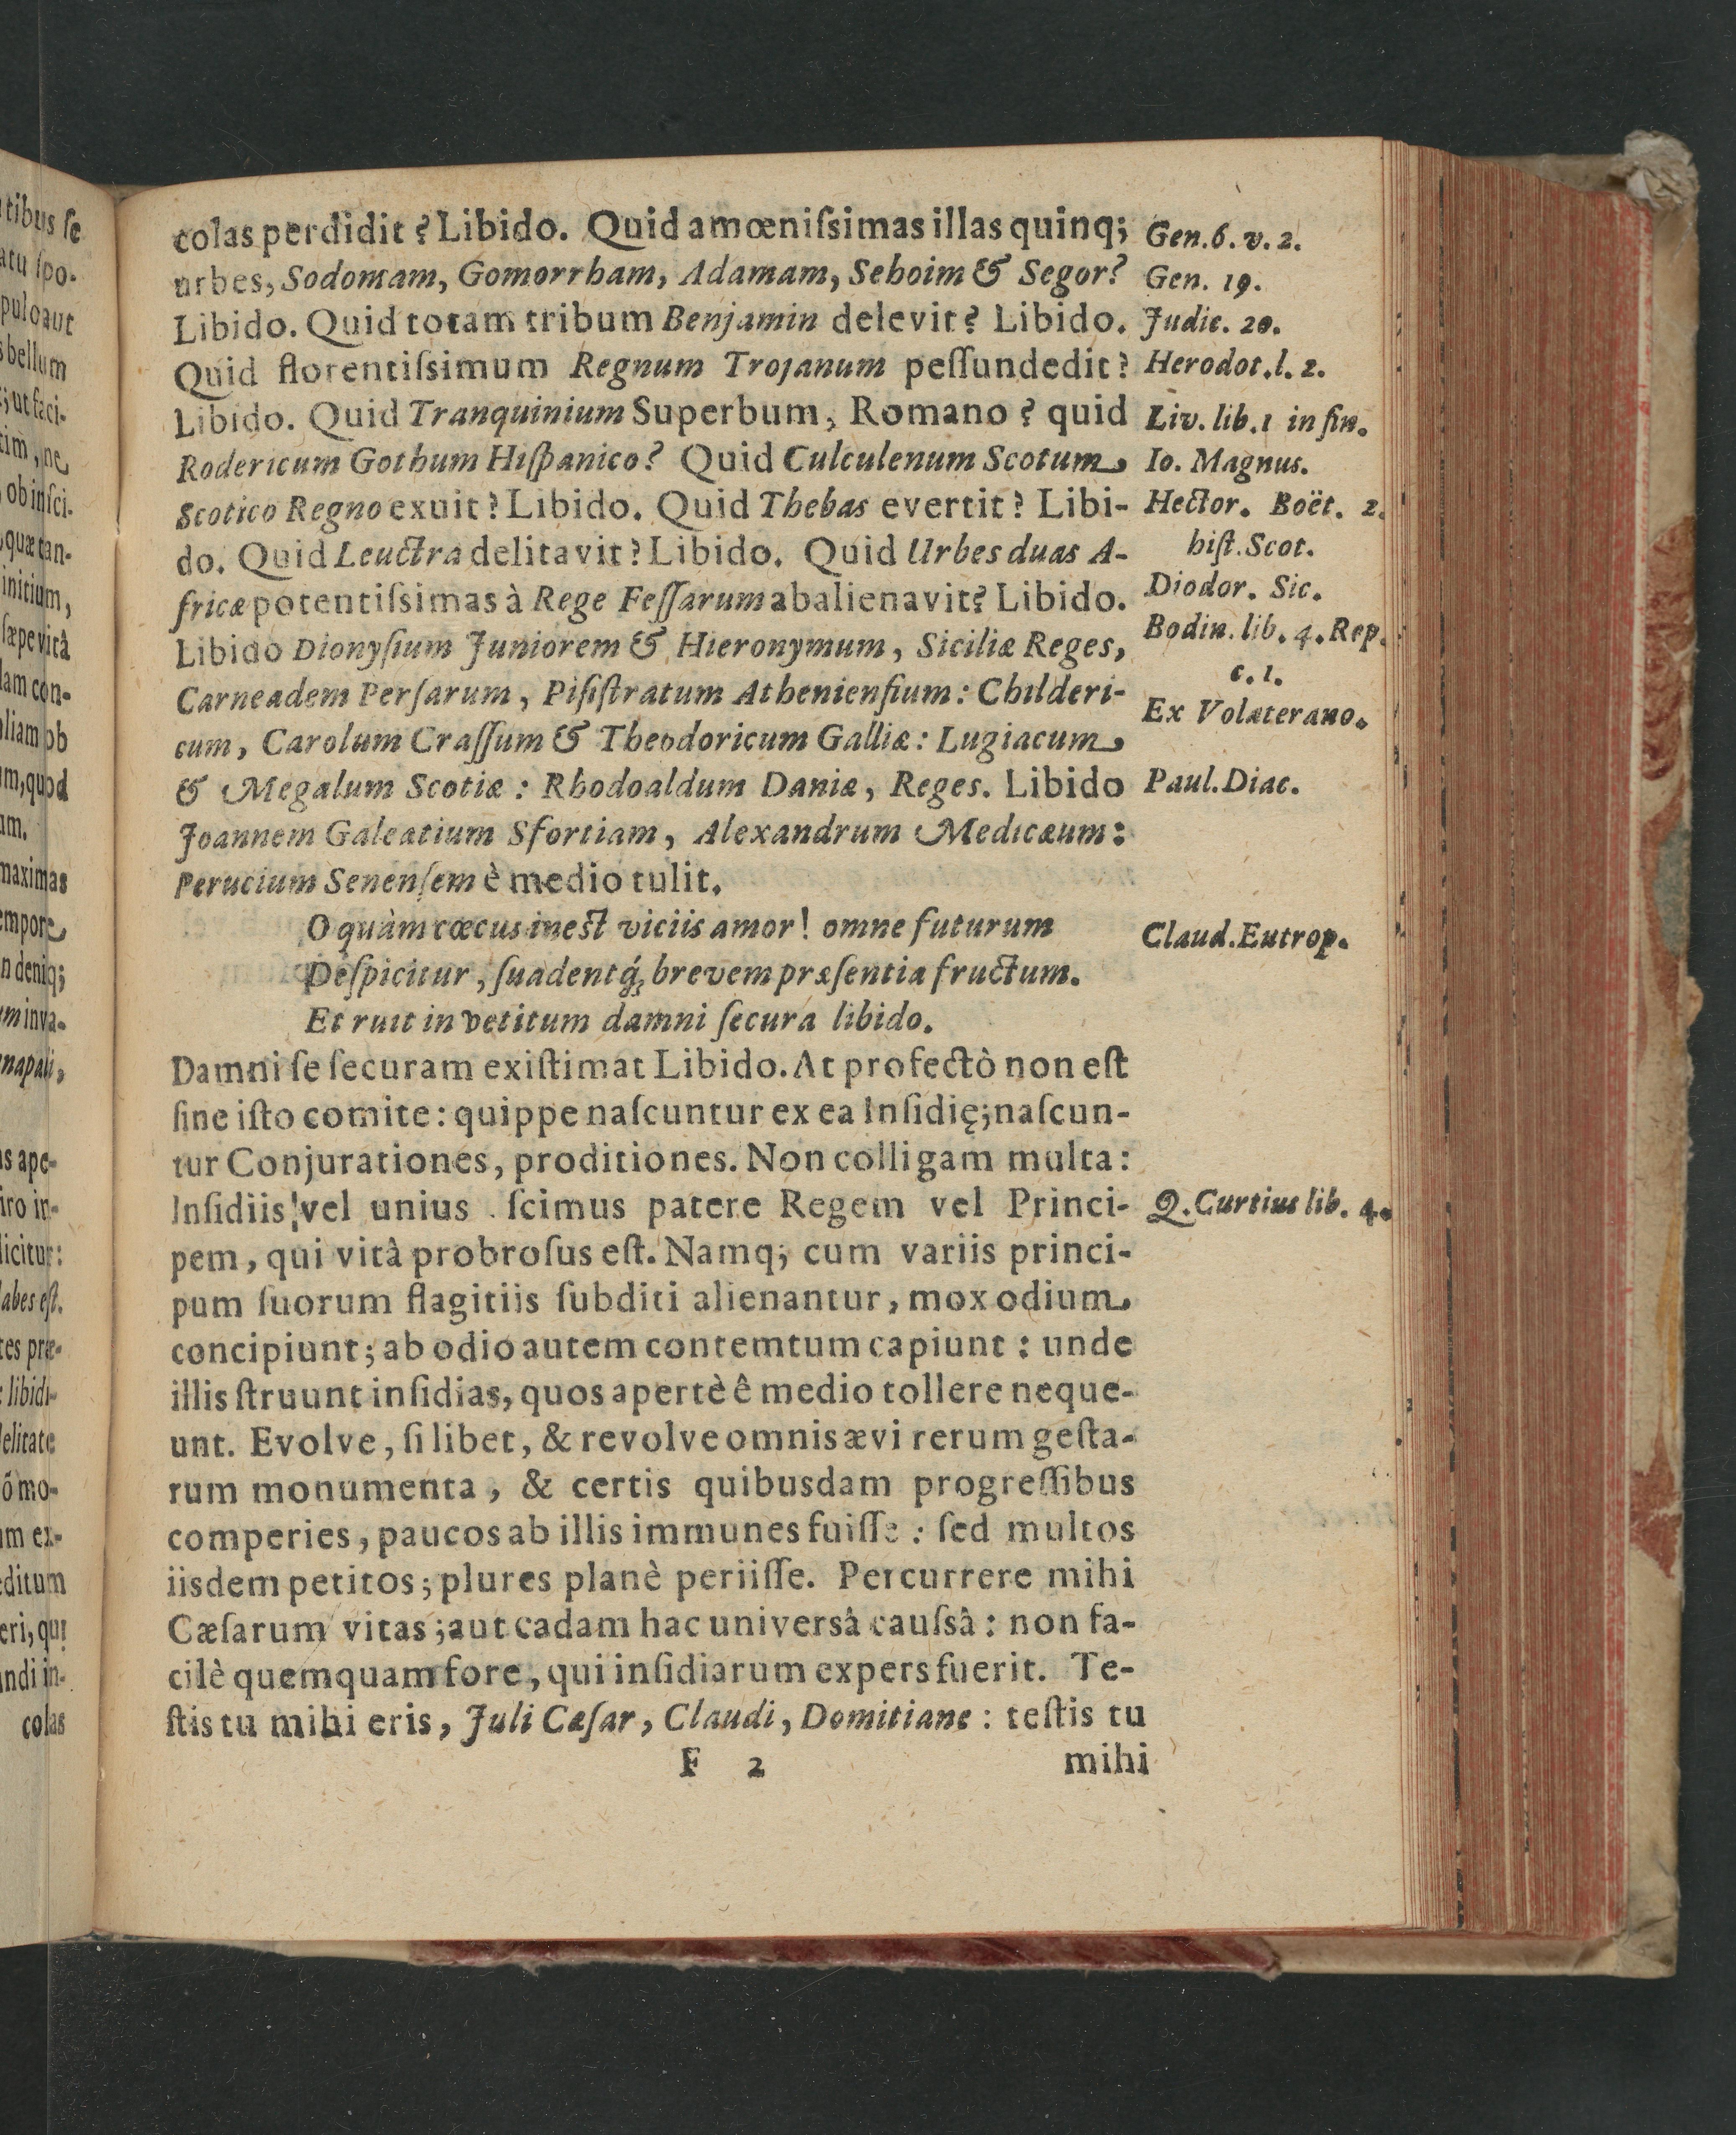 colas perdidit? Libido. Quid amœniſsimas illas quinq;
urbes, Sodomam, Gomorrham, Adamam, Seboim & Segor?
Libido. Quid totam tribum Benjamin delevit? Libido.
Quid florentiſsimum Regnum Trojanum peſſundedit?
Libido. Quid Tranquinium Superbum, Romano? quid
Rodericum Gothum Hiſpanico? Quid Culculenum Scotum,
Scotico Regno exuit? Libido. Quid Thebas evertit? Libi-
do. Quid Leuctra delitavit? Libido. Quid Urbes duas A-
fricæ potentiſsimas à Rege Feſſarum abalienavit? Libido.
Libido Dionyſium Juniorem & Hieronymum, Siciliæ Reges,
Carneadem Perſarum, Piſiſtratum Athenienſium: Childeri-
cum, Carolum Craſſum & Theodoricum Galliæ: Lugiacum
& Megalum Scotiæ: Rhodoaldum Daniæ, Reges. Libido
Joannem Galeatium Sfortiam, Alexandrum Medicæum:
Perucium Senenſem è medio tulit.
O quàm cœcus inest viciis amor! omne futurum
Deſpicitur, ſuadentq́; brevem præſentia fructum.
Et ruit in vetitum damni ſecura libido.
Damni ſe ſecuram exiſtimat Libido. At profectò non eſt
ſine iſto comite: quippe naſcuntur ex ea Inſidię; naſcun-
tur Conjurationes, proditiones. Non colligam multa:
Inſidiis vel unius ſcimus patere Regem vel Princi-
pem, qui vitâ probroſus eſt. Namq; cum variis princi-
pum ſuorum flagitiis ſubditi alienantur, mox odium
concipiunt; ab odio autem contemtum capiunt: unde
illis ſtruunt inſidias, quos apertè ê medio tollere neque-
unt. Evolve, ſi libet, & revolve omnis ævi rerum geſta-
rum monumenta, & certis quibusdam progreſſibus
comperies, paucos ab illis immunes fuiſſe: ſed multos
iisdem petitos; plures planè periiſſe. Percurrere mihi
Cæſarum vitas; aut cadam hac universâ cauſsâ: non fa-
cilè quemquam fore, qui inſidiarum expers fuerit. Te-
ſtis tu mihi eris, Juli Cæſar, Claudi, Domitiane: teſtis tu
F 2
mihi
Gen. 6. v. 2.
Gen. 19.
Judic. 20.
Herodot. l. 2.
Liv. lib. 1 in fin.
Io. Magnus.
Hector. Boët. 2.
hiſt. Scot.
Diodor. Sic.
Bodin. lib. 4. Rep.
c. 1.
Ex Volaterano.
Paul. Diac.
Claud. Eutrop.
Q. Curtius lib. 4.
tibus ſe
pulo aut
bellum
ut faci-
initium,
ſæpe vitâ
maximas
n deniq;
colas